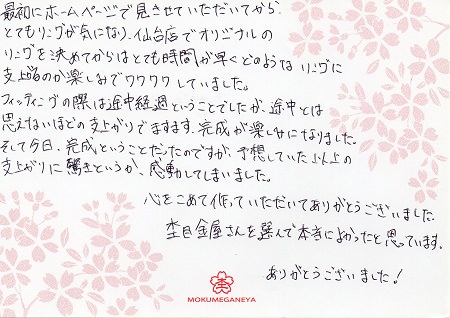 最初にホームページで見させていただいてから、
とてもリングが気になり、仙台店でオリジナルの
リングを決めてからはとても時間が早くどのような リングに
仕上がるのか楽しみでワクワクしていました。
フィッティングの際は途中経過ということでしたが、途中とは
思えないほどの仕上がりでますます、完成が楽しみになりました。
そして今日、完成ということだったのですが、予想していた以上の
仕上がりに驚きというか、感動してしまいました。
心をこめて作っていただいてありがとうございました。
杢目金屋さんを選んで本当によかったと思っています。
ありがとうございました!
MOKUMEGANEYA